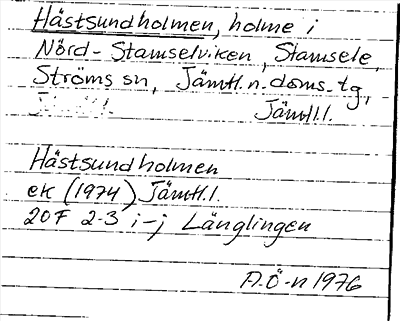 Hästsundholmen, holme i
Nörd-Stamselviken, Stamsele,
Ströms sn, Jämtl.n.doms.tg,
Jämtl.l.
Hästsundholmen
ek (1974) Jämtl.l.
20F 2-3 i-j Länglingen
A.Ö-n 1976